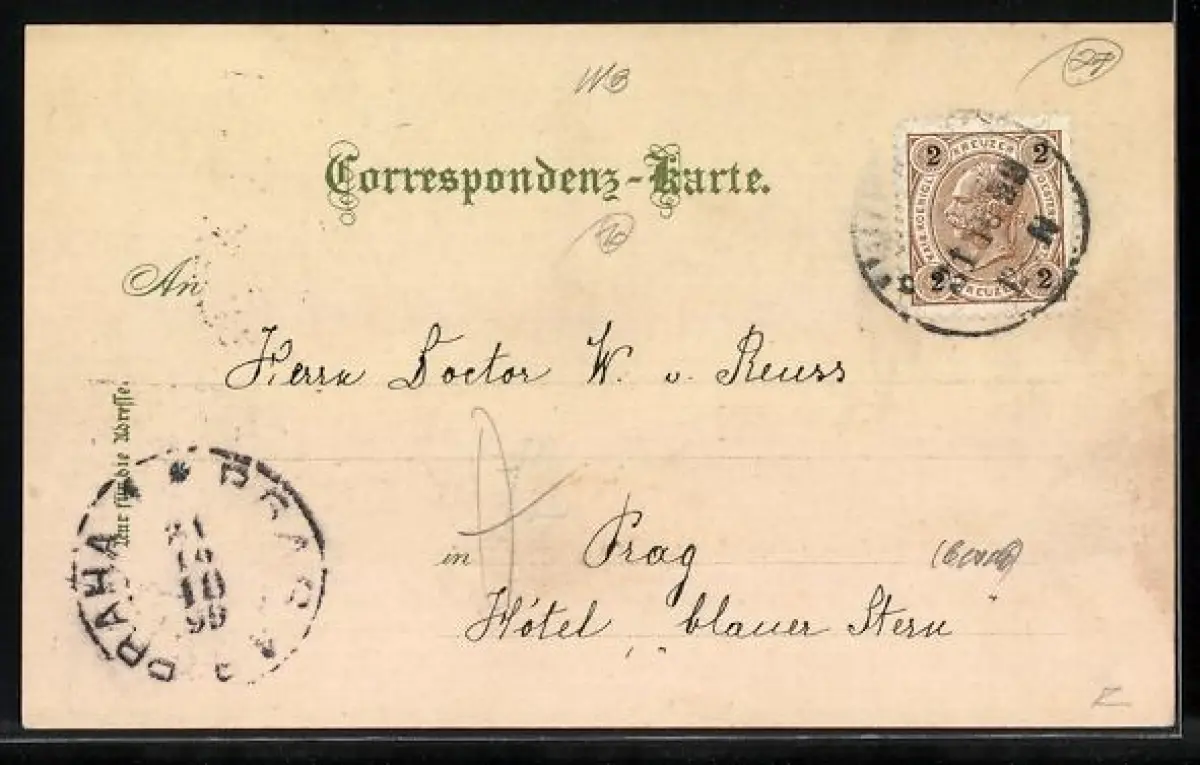 WB
27
Correspondenz-Karte.
2 KREUZER 2
2 KREUZER 2
An
Herrn Doctor W. v. Reuss
Nur für die Adresse.
in Prag
Hôtel blauer Stern
PRAHA
PRAG